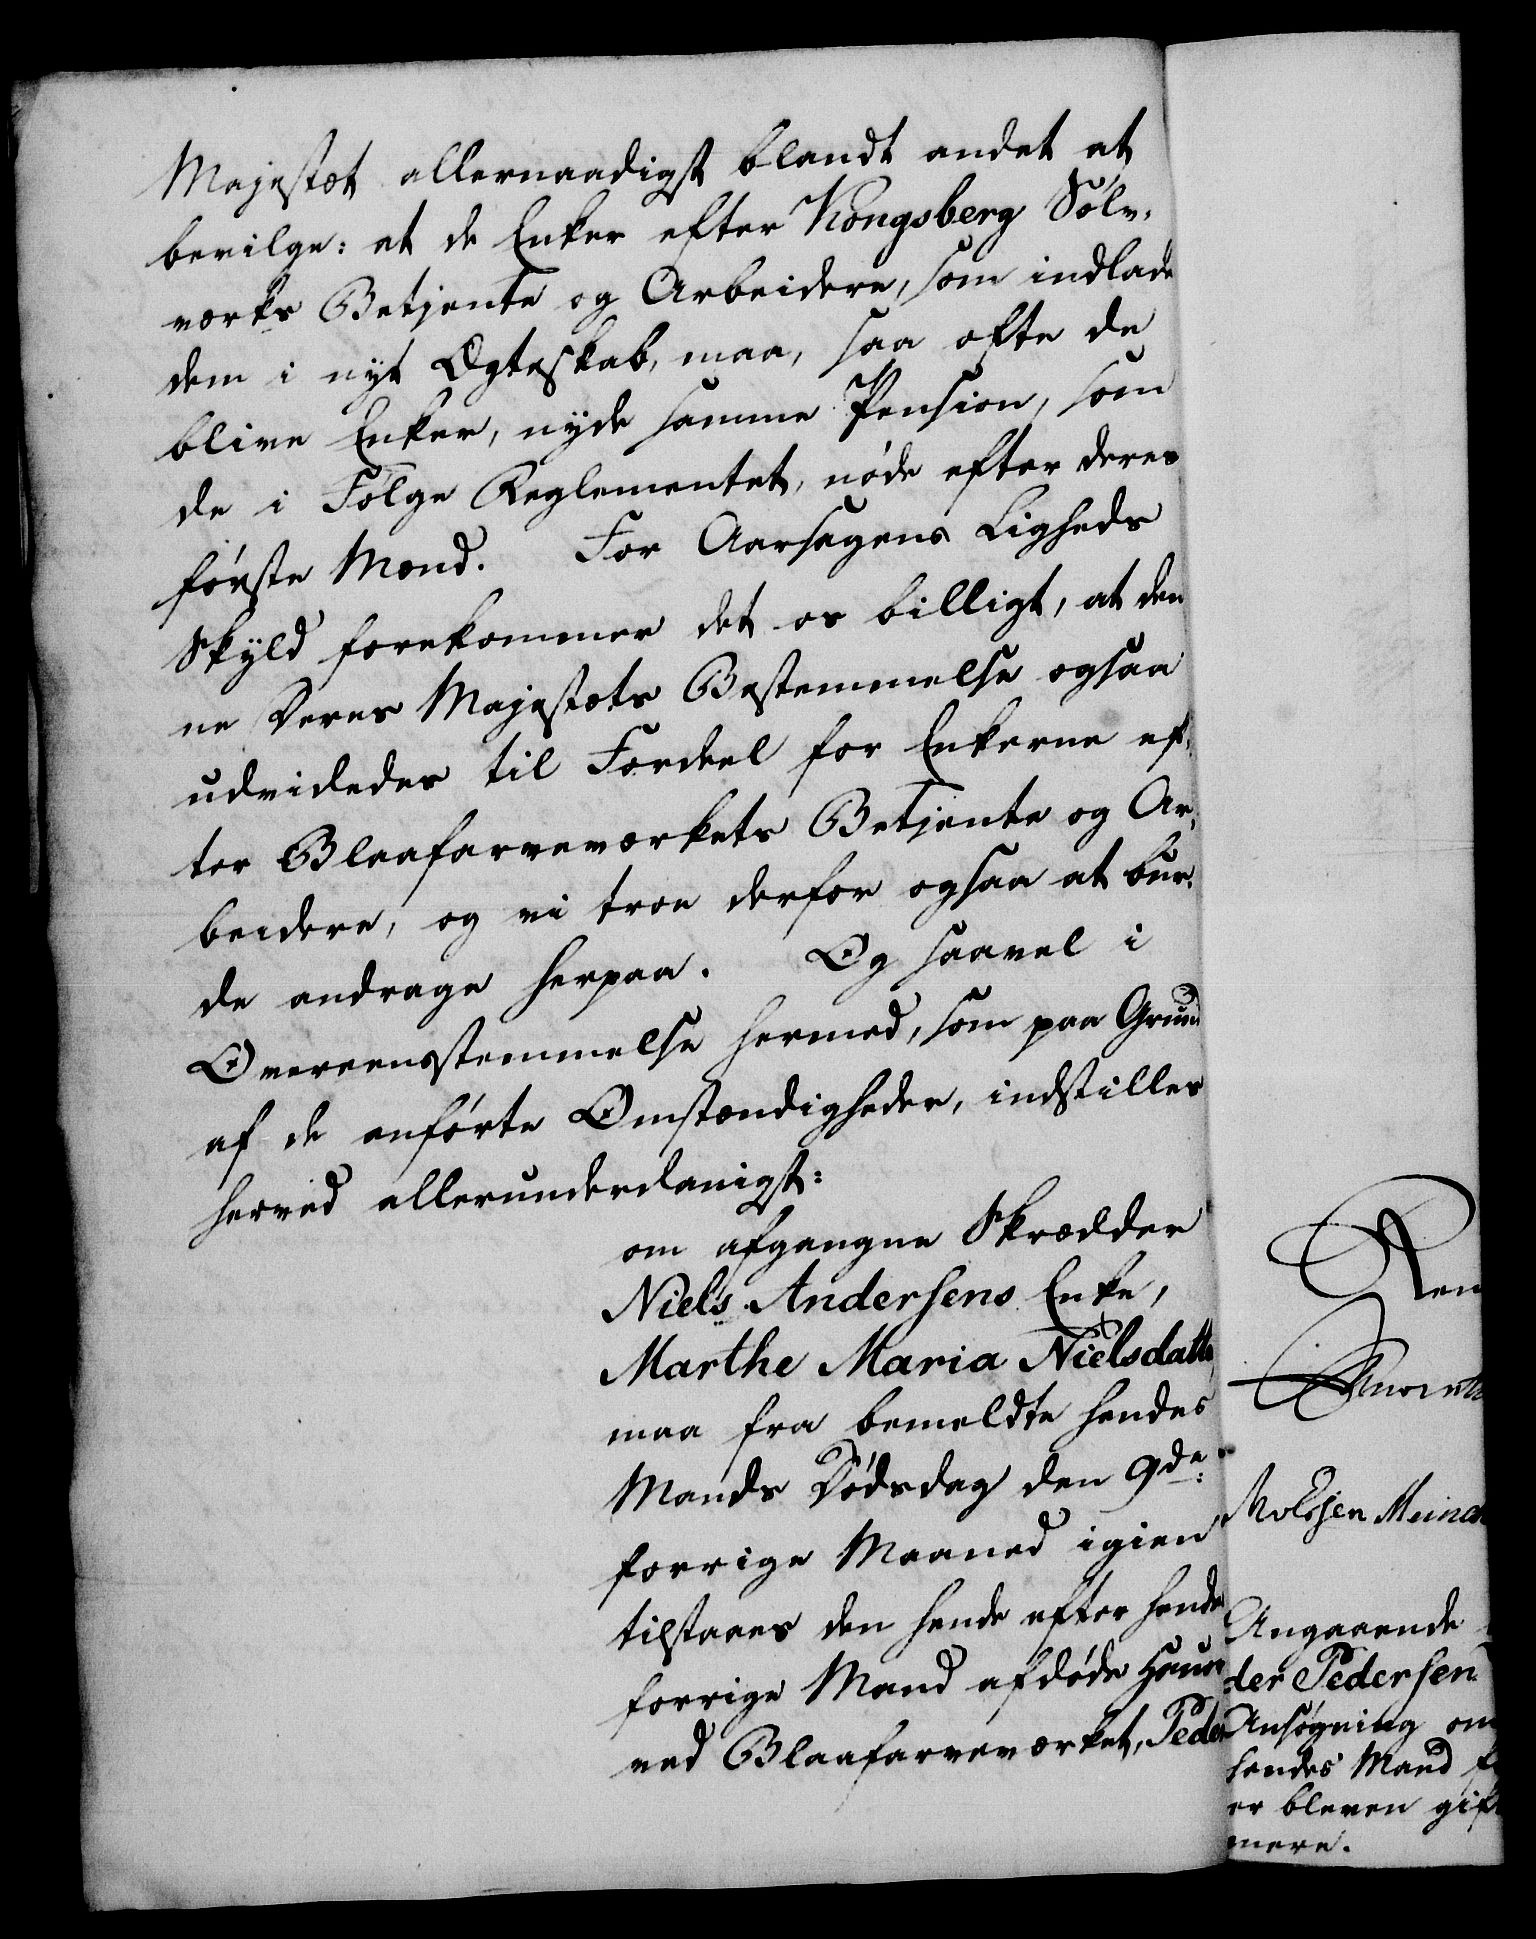 Majestæt allernaadigst blandt andet at
bevilge: at de Enker efter Kongsberg Sølv-
værks Betjente og Arbeidere, som indlade
dem i nyt Ægteskab, maa, saa ofte de
blive Enker, nyde samme Pension, som
de i Følge Reglementet, nøde efter deres
første Mænd. For Aarsagens Ligheds
Skyld forekommer det os billigt, at den
ne Deres Majestæts Bestemmelse ogsaa
udvidedes til Fordeel for Enkerne ef-
ter Blaafarveværkets Betjente og Ar-
beidere, og vi troe derfor ogsaa at bur-
de andrage herpaa. Og saavel i
Overeensstemmelse hermed, som paa Grund
af de anførte Omstændigheder, indstilles
herved allerunderdanigst:
om afgangne Skrædder
Niels Andersens Enke,
Marthe Maria Nielsdatte
maa fra bemeldte hendes
Mands Dødsdag den 9de
forrige Maaned igien
tilstaaes den hende efter hende
forrige Mand afdøde Hauer
ved Blaafarveværket, Peder
Ren
Angaaende
der Pedersen
Ansøgning om
hendes Mand
er bleven gift
mere.